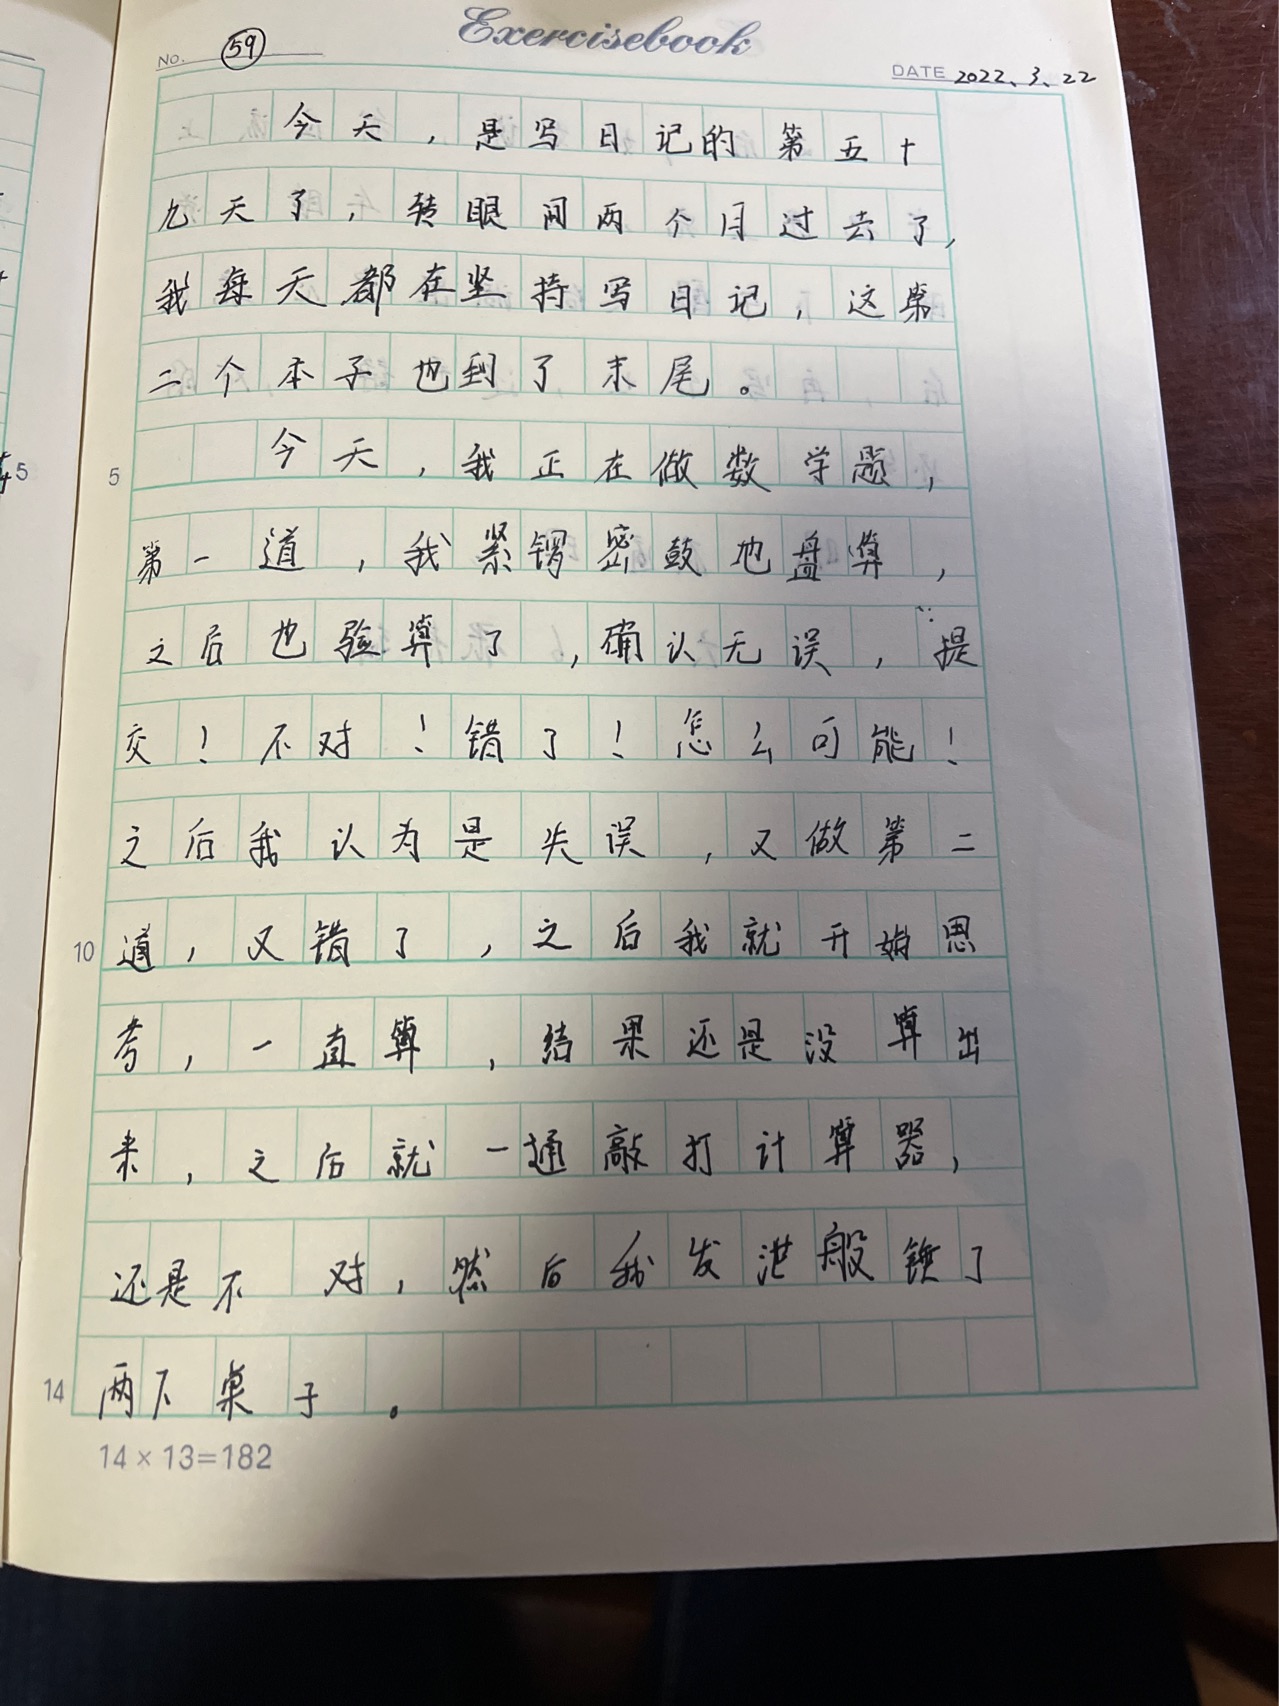 Exercisebook
NO. 59
DATE 2022.3.22
今天，是写日记的第五十
九天了，转眼间两个月过去了，
我每天都在坚持写日记，这第
二个本子也到了末尾。
今天，我正在做数学题，
5
第一道，我紧锣密鼓地盘算，
之后也验算了，确认无误，提
交！不对！错了！怎么可能！
之后我认为是失误，又做第二
10 道，又错了，之后我就开始思
考，一直算，结果还是没算出
来，之后就一通敲打计算器，
还是不对，然后我发泄般锤了
14 两下桌子。
14×13=182
5